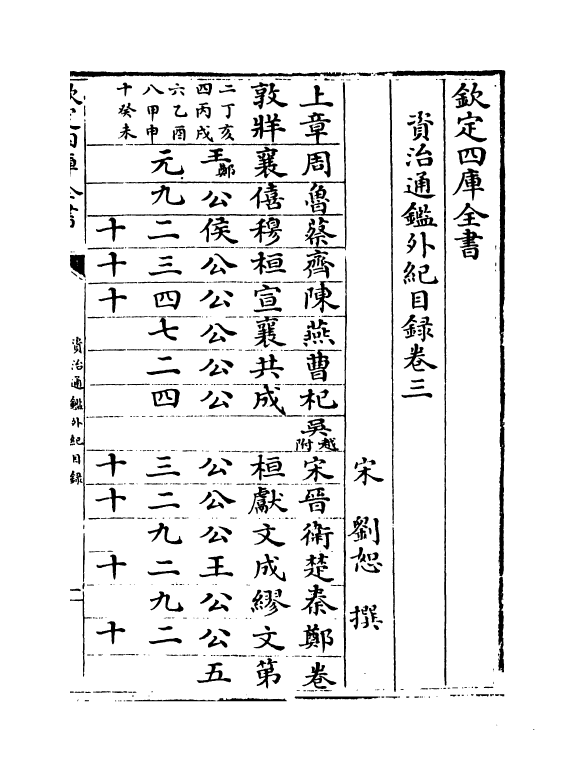 欽定四庫全書
資治通鑑外紀目録卷三
宋 劉恕 撰
上章周魯蔡齊陳燕曹杞吳越附宋晉衛楚秦鄭卷
敦牂襄僖穆桓宣襄共成桓獻文成繆文第
二丁亥
四丙戌
六乙酉
八甲申
十癸未
王鄭公侯公公公公公公公公王公公五
元九二三四七二四三二九二九二
十十十十十十十
欽定四庫全書
資治通鑑外紀目録